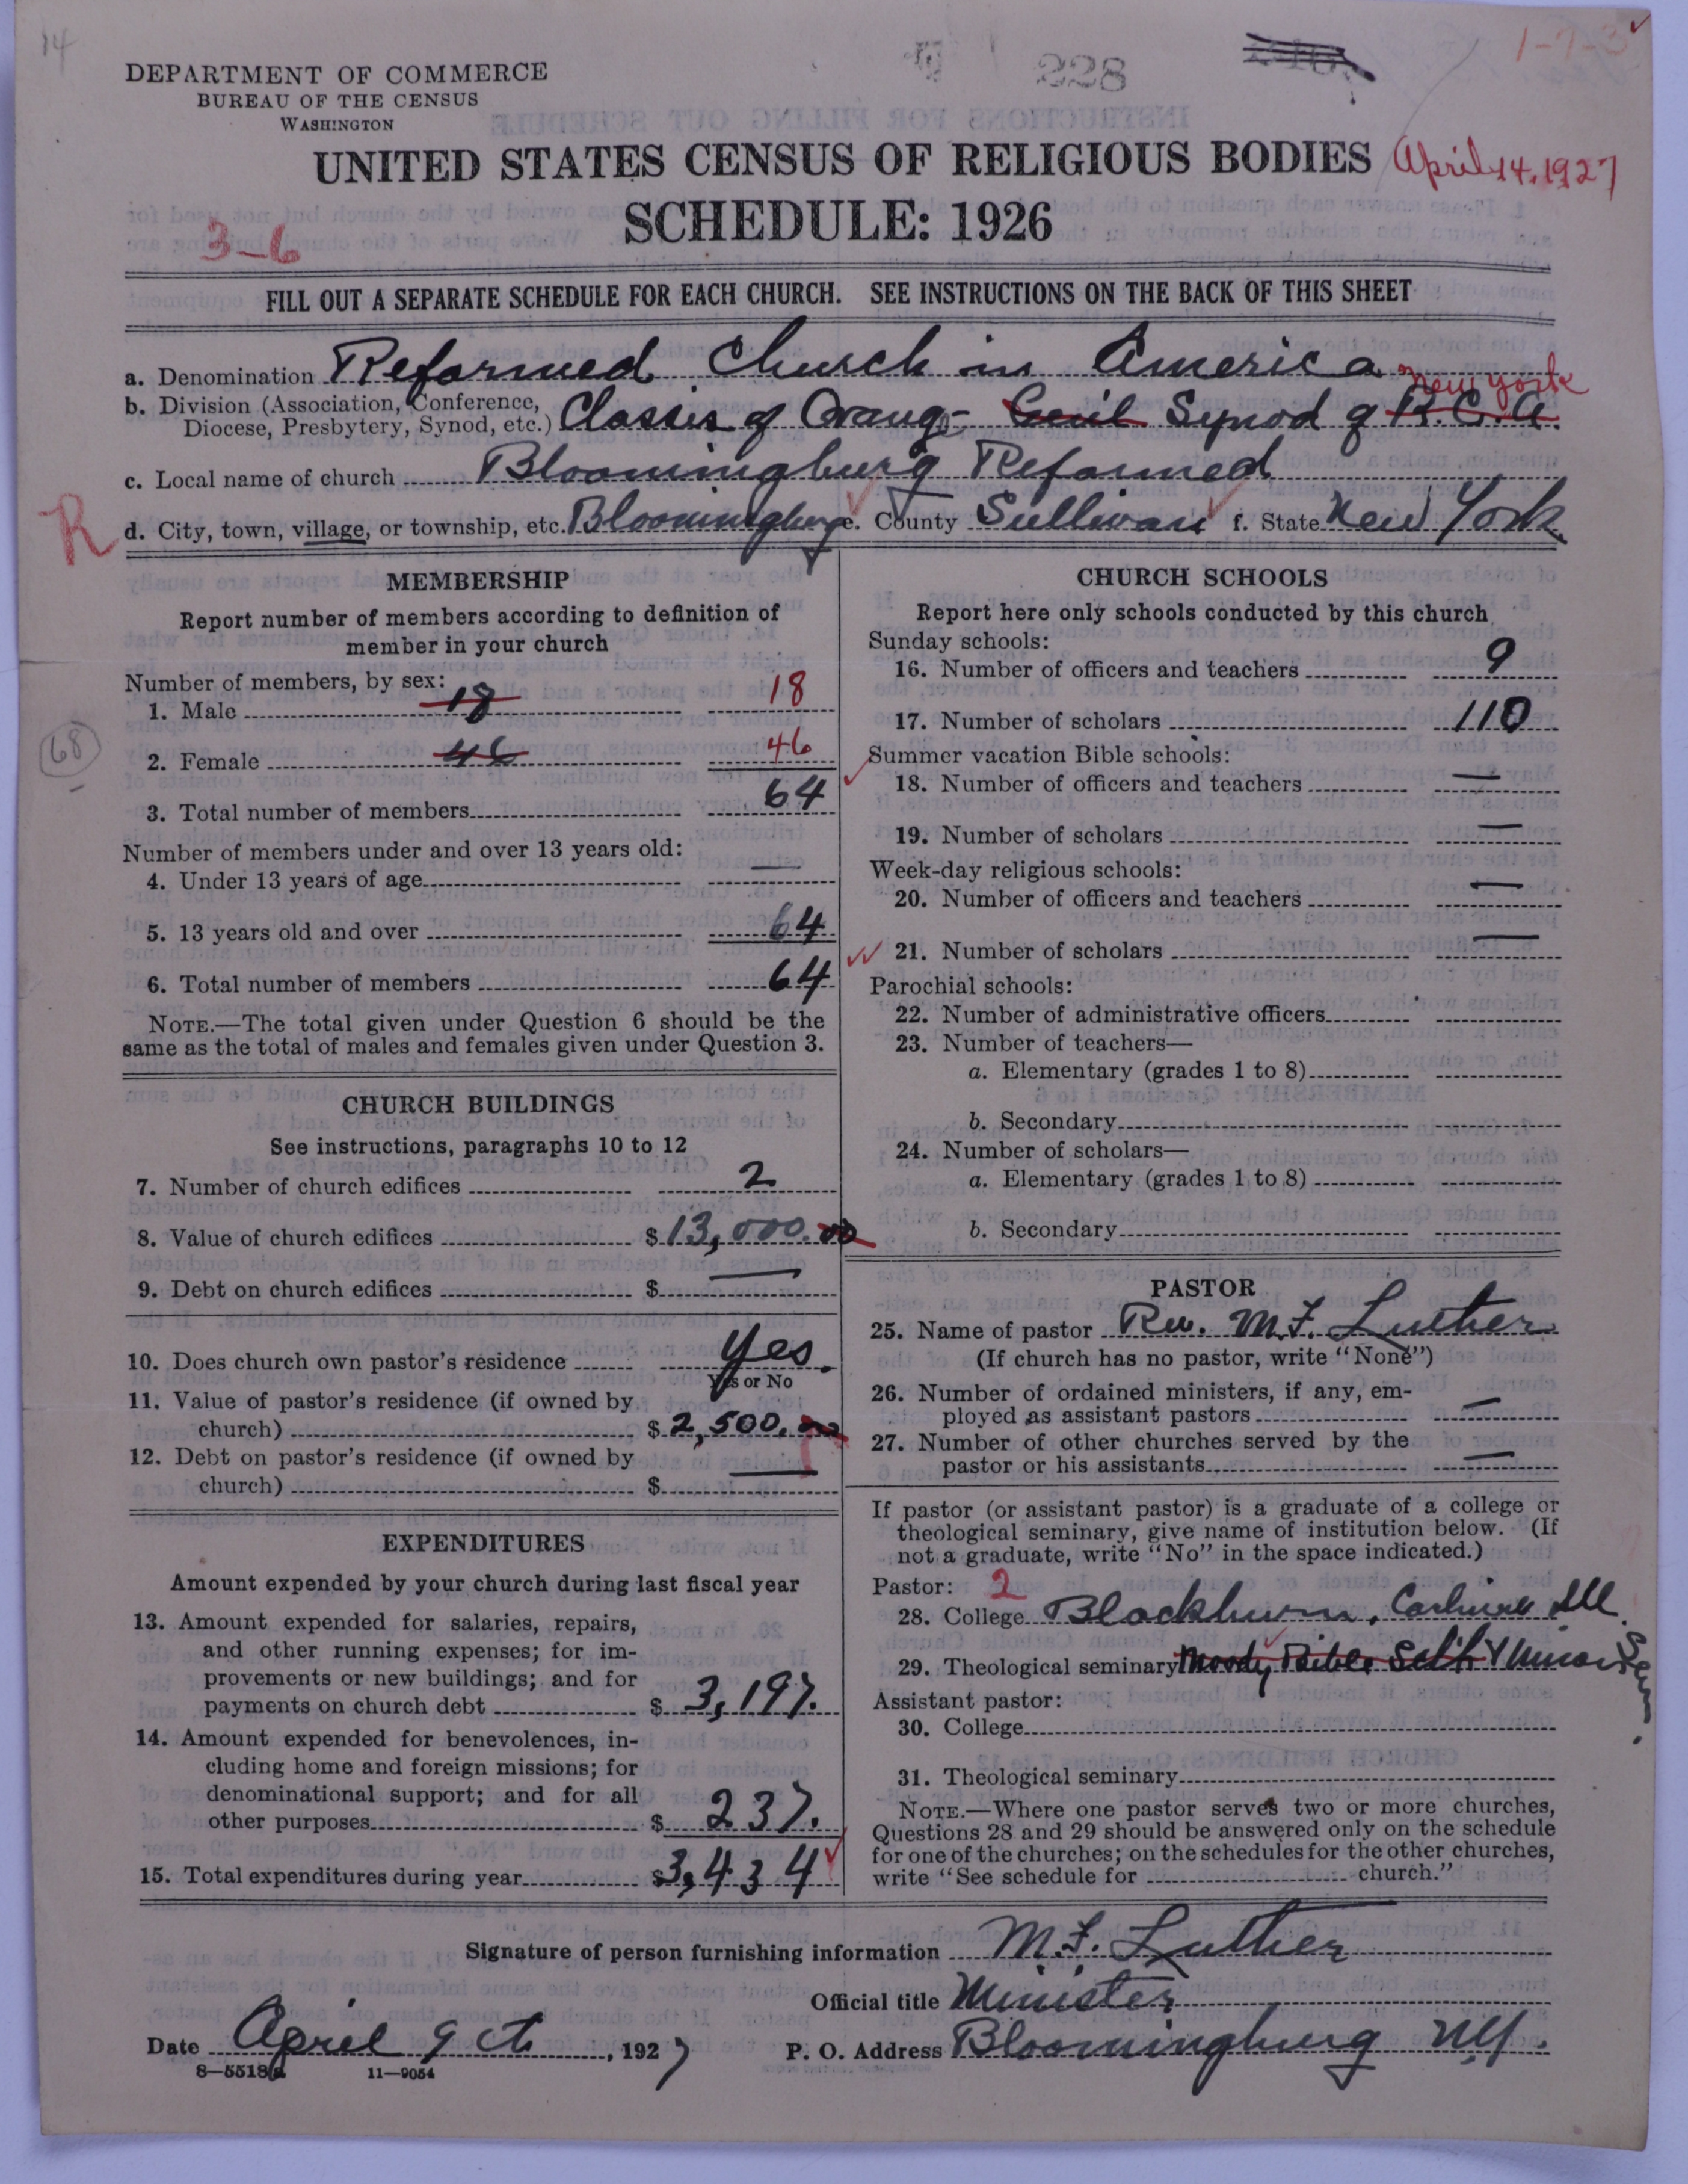 14
228
1-7-3
DEPARTMENT OF COMMERCE
BUREAU OF THE CENSUS
WASHINGTON
UNITED STATES CENSUS OF RELIGIOUS BODIES April 14, 1927
SCHEDULE: 1926
3-6
FILL OUT A SEPARATE SCHEDULE FOR EACH CHURCH. SEE INSTRUCTIONS ON THE BACK OF THIS SHEET
a. Denomination Reformed Church in America
New York
b. Division (Association, Conference, Diocese, Presbytery, Synod, etc.) Classis of Orange - Synod of R.C.A.
c. Local name of church Bloomingburg Reformed
R
d. City, town, village, or township, etc. Bloomingburg e. County Sullivan f. State New York
MEMBERSHIP
Report number of members according to definition of
member in your church
Number of members, by sex:
1. Male 18 18
2. Female 46 46
68
3. Total number of members 64
Number of members under and over 13 years old:
4. Under 13 years of age —
5. 13 years old and over 64
6. Total number of members 64
NOTE.—The total given under Question 6 should be the
same as the total of males and females given under Question 3.
CHURCH BUILDINGS
See instructions, paragraphs 10 to 12
7. Number of church edifices 2
8. Value of church edifices $ 13,000.00
9. Debt on church edifices $ —
10. Does church own pastor's residence Yes.
Yes or No
11. Value of pastor's residence (if owned by
church) $ 2,500.00
12. Debt on pastor's residence (if owned by
church) $ —
EXPENDITURES
Amount expended by your church during last fiscal year
13. Amount expended for salaries, repairs,
and other running expenses; for im-
provements or new buildings; and for
payments on church debt $ 3,197.
14. Amount expended for benevolences, in-
cluding home and foreign missions; for
denominational support; and for all
other purposes $ 237.
15. Total expenditures during year $ 3,434
CHURCH SCHOOLS
Report here only schools conducted by this church
Sunday schools:
16. Number of officers and teachers 9
17. Number of scholars 110
Summer vacation Bible schools:
18. Number of officers and teachers —
19. Number of scholars —
Week-day religious schools:
20. Number of officers and teachers —
21. Number of scholars —
Parochial schools:
22. Number of administrative officers
23. Number of teachers—
a. Elementary (grades 1 to 8)
b. Secondary
24. Number of scholars—
a. Elementary (grades 1 to 8)
b. Secondary
PASTOR
25. Name of pastor Rev. M.F. Luther
(If church has no pastor, write "None")
26. Number of ordained ministers, if any, em-
ployed as assistant pastors —
27. Number of other churches served by the
pastor or his assistants —
If pastor (or assistant pastor) is a graduate of a college or
theological seminary, give name of institution below. (If
not a graduate, write "No" in the space indicated.)
Pastor: 2
28. College Blackburn, Carlinville Ill.
29. Theological seminary Moody Bible Sem.
Assistant pastor:
30. College
31. Theological seminary
NOTE.—Where one pastor serves two or more churches,
Questions 28 and 29 should be answered only on the schedule
for one of the churches; on the schedules for the other churches,
write "See schedule for church."
Signature of person furnishing information M.F. Luther
Official title Minister
Date April 9th, 1927
P. O. Address Bloomingburg N.Y.
8-5518a 11-9054